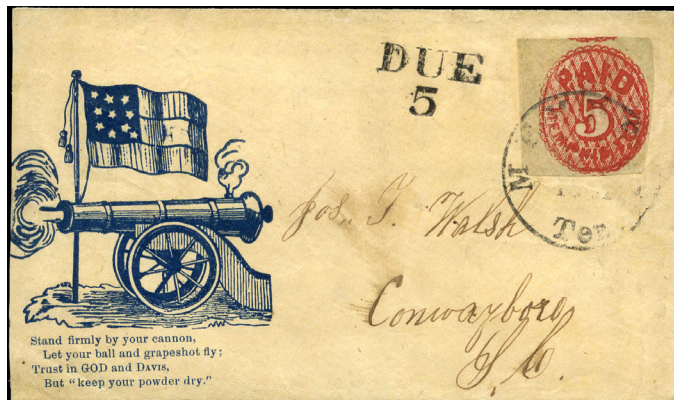 DUE
5
PAID
5
M
Ten
Jos. T. Walsh
Conwayboro
S. C.
Stand firmly by your cannon,
Let your ball and grapeshot fly;
Trust in GOD and DAVIS,
But "keep your powder dry."